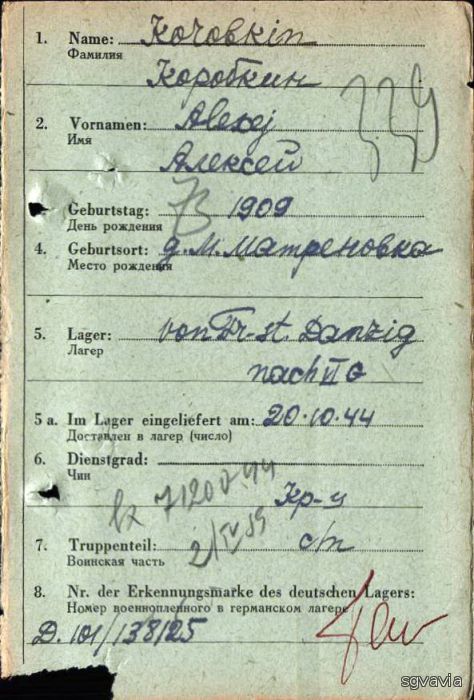 1. Name: Korobkin
Фамилия
Коробкин
2. Vornamen: Alexej
Имя
Алексей
Geburtstag: 1909
День рождения
4. Geburtsort: д. М. Матреновка
Место рождения
5. Lager: von Fr-st. Danzig
Лагер
nach II G
5 a. Im Lager eingeliefert am: 20.10.44
Доставлен в лагер (число)
6. Dienstgrad:
Чин
Кр-ц
7. Truppenteil: с/п
Воинская часть
8. Nr. der Erkennungsmarke des deutschen Lagers:
Номер военнопленного в германском лагере
D. 101/138125
sgvavia